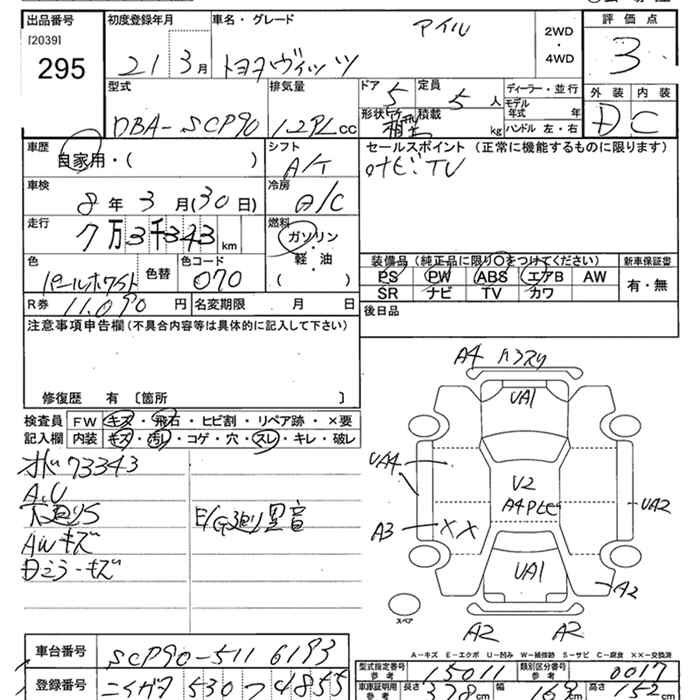 出品番号 初度登録年月 車名・グレード 評価点
[2039]
295
21 3月 トヨタヴィッツ アイル 2WD・4WD 3
型式 排気量 ドア 定員 ディーラー・並行 外装 内装
DBA-SCP90 cc 5 5人 モデル年式 年 D C
形状 積載 kg ハンドル 左・右
車歴 シフト セールスポイント（正常に機能するものに限ります）
自家用・( ) A/T ナビ TV
車検 冷房
8年3月(30日) A/C
走行 燃料
7万3千343km ガソリン・軽・油( )
装備品（純正品に限り○をつけてください） 新車保証書
色 色替 色コード PS PW ABS エアB AW 有・無
パールホワイト 070 SR ナビ TV カワ
R券 11,090円 名変期限 月 日 後日品
注意事項申告欄（不具合内容等は具体的に記入して下さい）
修復歴 有〔箇所 〕
検査員記入欄 FW キズ・飛石・ヒビ割・リペア跡・×要
内装 キズ・汚レ・コゲ・穴・スレ・キレ・破レ
73343
A.U
E/G廻り異音
AWキズ
Dミラーキズ
A4
UA1
UA4
V2
A4
UA2
A3 XX
UA1
A2
スペア
A2 A2
A-キズ E-エクボ U-凹み W-補修跡 S-サビ C-腐食 ××-交換済
車台番号 SCP90-5116193
型式指定番号 参考 15011 類別区分番号 参考 0017
登録番号 ニイガタ 530 ツ 4855
車庫証明用 参考 長さ 378 幅 169 高さ 152